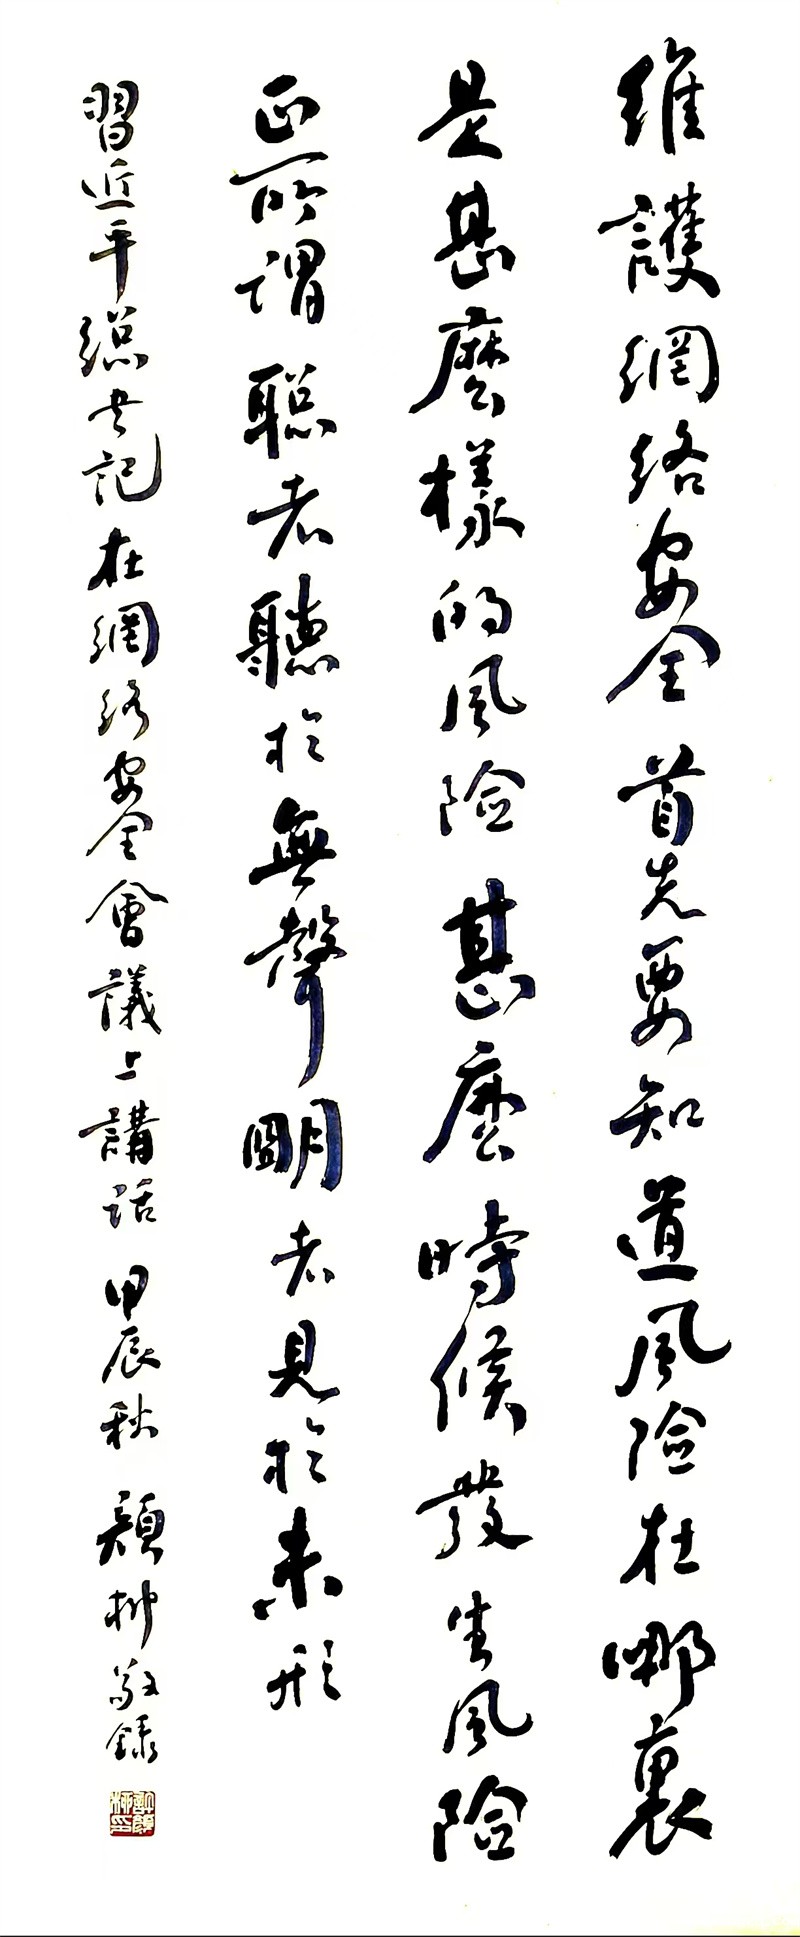 維護網絡安全首先要知道風險在哪裏
是甚麼樣的風險甚麼時候發生風險
正所謂聰者聽於無聲明者見於未形
習近平總書記在網絡安全會議上講話甲辰秋穎柳敬録